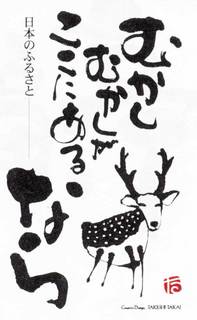 むかし
むかしが
ここにある、
なら
日本のふるさと
Creative Design TAKESHI TAKAI